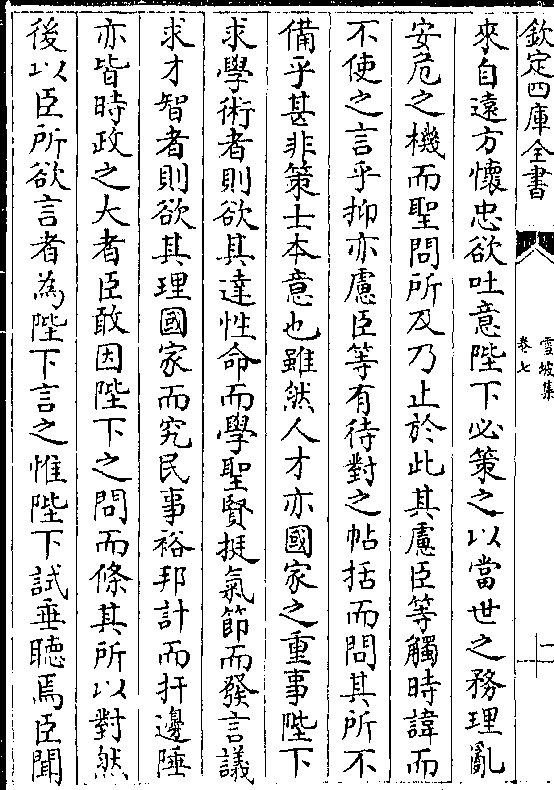 欽定四庫全書
雪坡集
卷七
十一
來自遠方懷忠欲吐意陛下必策之以當世之務理亂
安危之機而聖問所及乃止於此其慮臣等觸時諱而
不使之言乎抑亦慮臣等有待對之帖括而問其所不
備乎甚非策士本意也雖然人才亦國家之重事陛下
求學術者則欲其達性命而學聖賢挺氣節而發言議
求才智者則欲其理國家而究民事裕邦計而扞邊陲
亦皆時政之大者臣敢因陛下之問而條其所以對然
後以臣所欲言者為陛下言之惟陛下試垂聽焉臣聞